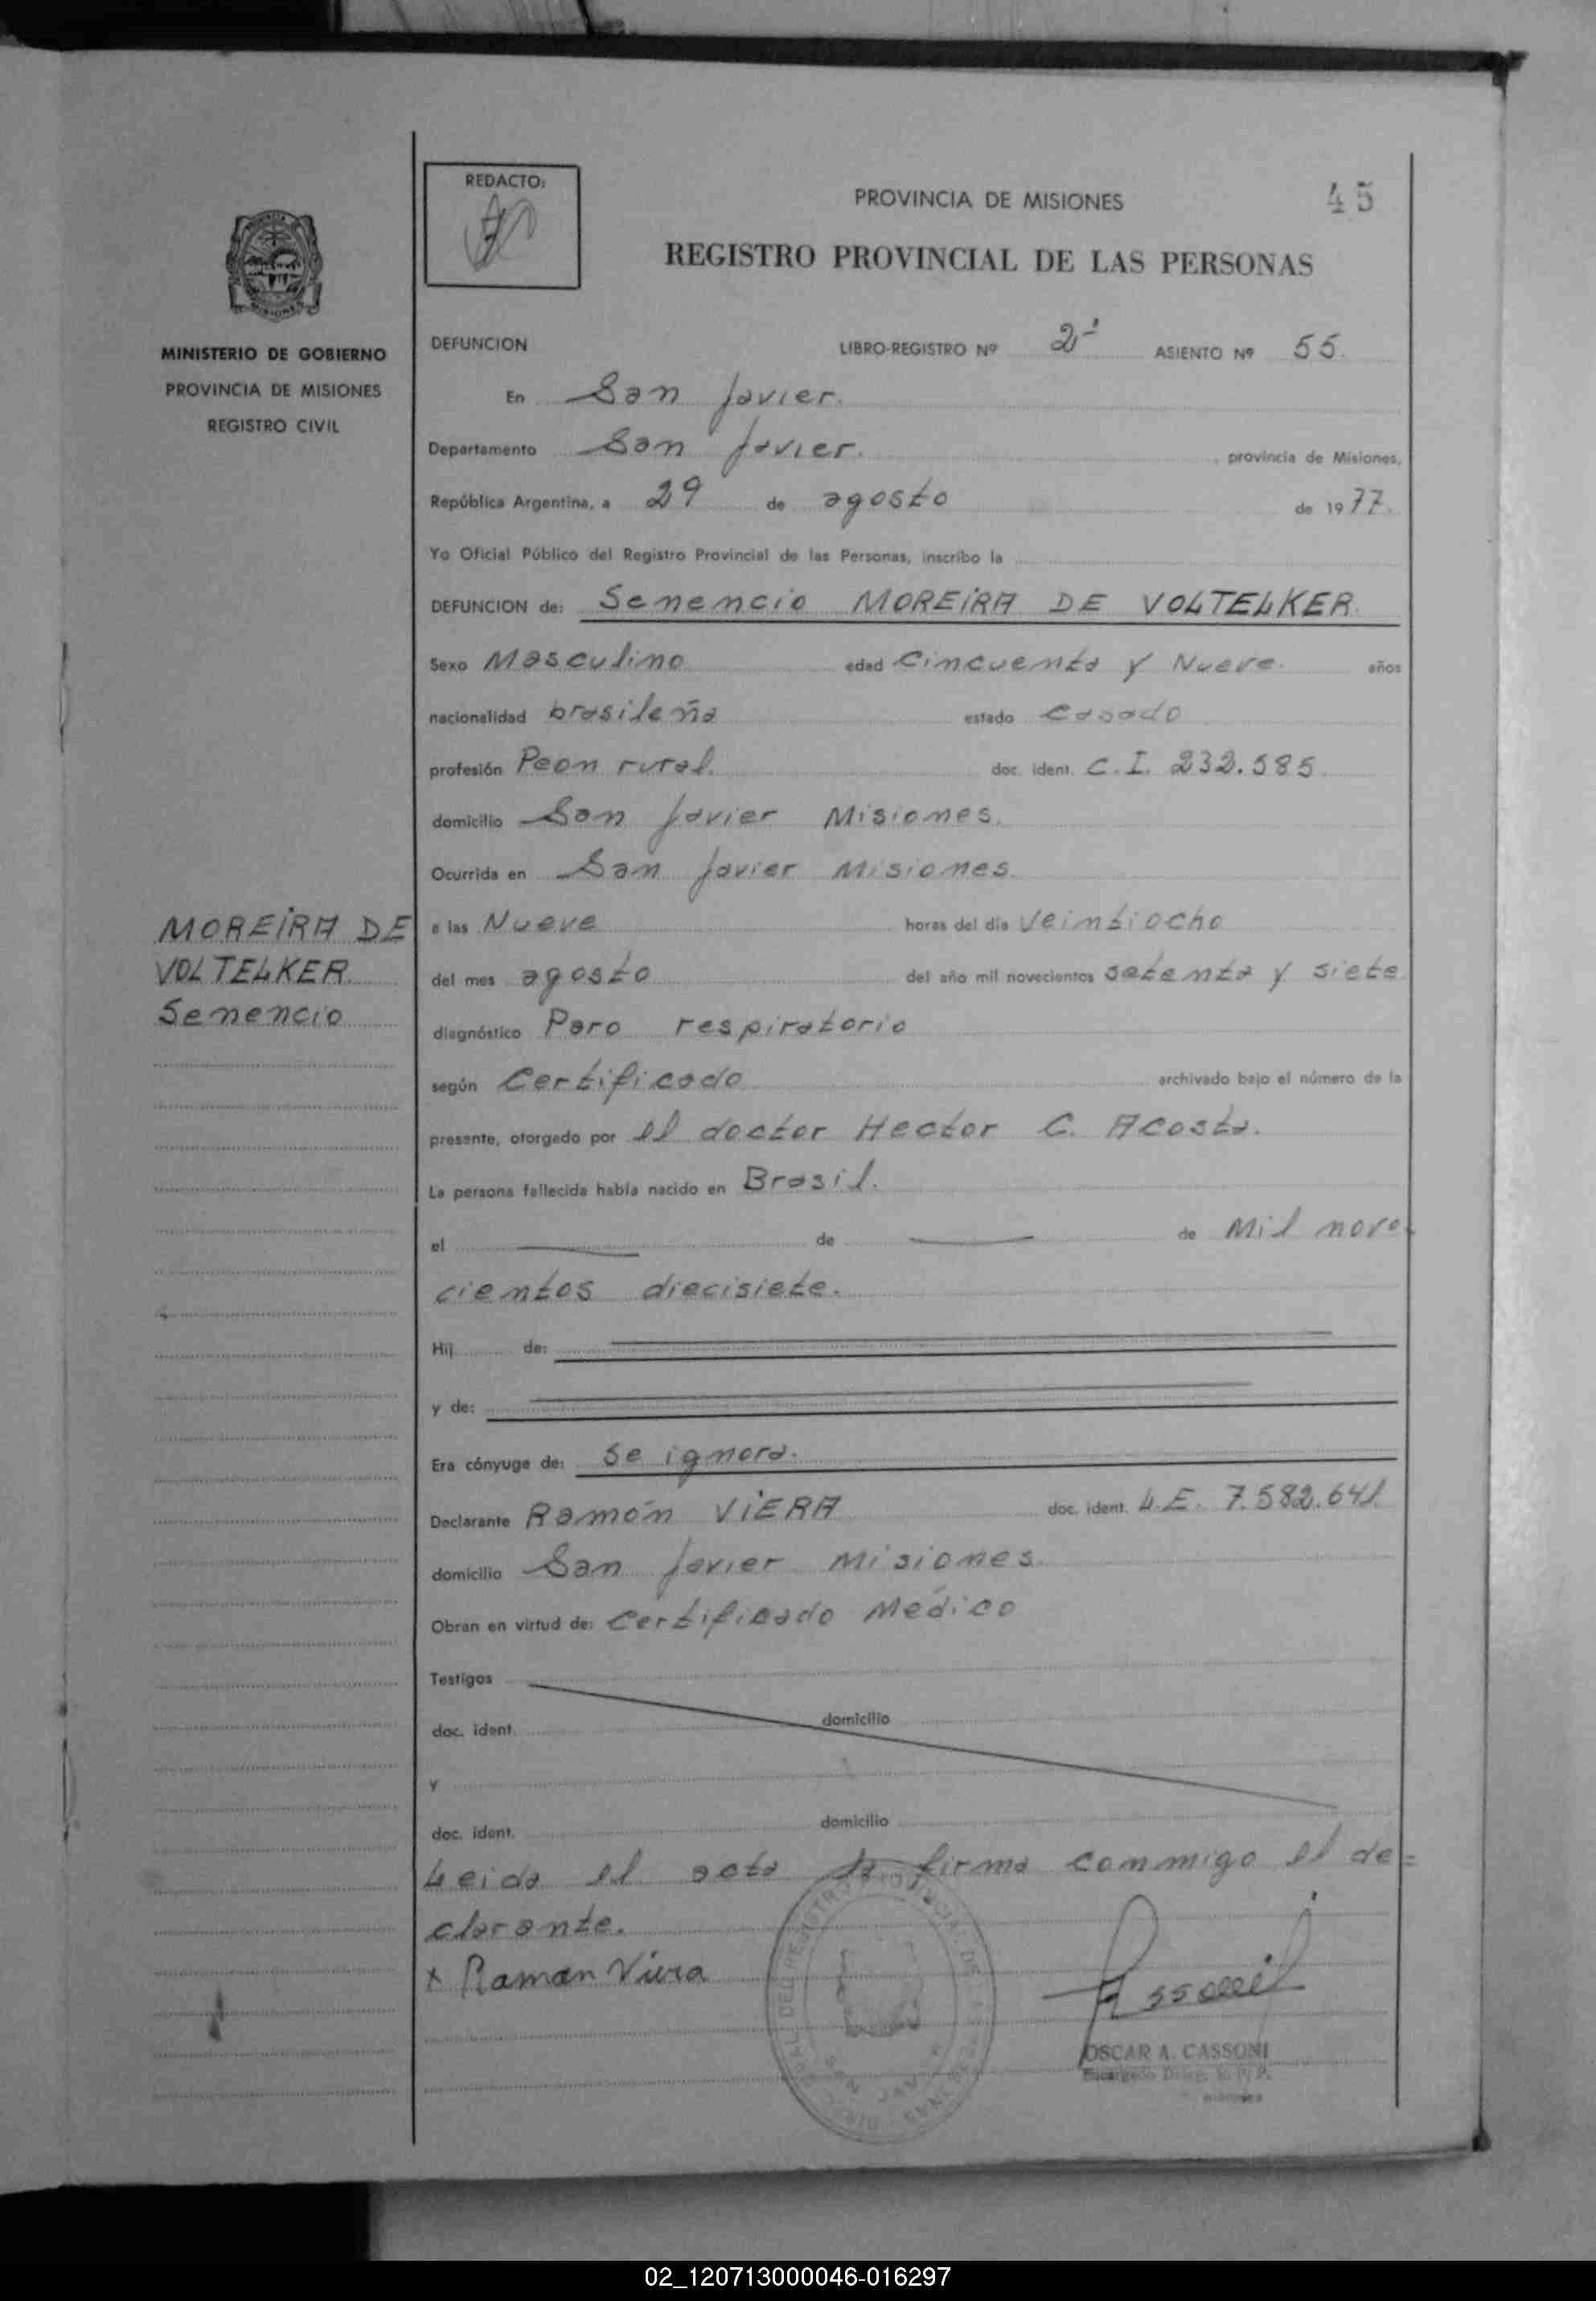 REDACTO:
PROVINCIA DE MISIONES
45
REGISTRO PROVINCIAL DE LAS PERSONAS
MINISTERIO DE GOBIERNO
PROVINCIA DE MISIONES
REGISTRO CIVIL
DEFUNCION LIBRO-REGISTRO Nº 2- ASIENTO Nº 55.
En San Javier.
Departamento San Javier. , provincia de Misiones,
República Argentina, a 29 de agosto de 1977.
Yo Oficial Público del Registro Provincial de las Personas, inscribo la
DEFUNCION de: Senencio MOREIRA DE VOLTELKER
Sexo Masculino edad Cincuenta y Nueve. años
nacionalidad brasileña estado Casado
profesión Peon rural. doc. ident. C.I. 232.585
domicilio San Javier Misiones.
Ocurrida en San Javier Misiones.
a las Nueve horas del día veintiocho
del mes agosto del año mil novecientos setenta y siete
diagnóstico Paro respiratorio
según Certificado archivado bajo el número de la
presente, otorgado por el doctor Hector C. Acosta.
La persona fallecida había nacido en Brasil.
el de de Mil nove-
cientos diecisiete.
Hij de:
y de:
Era cónyuge de: Se ignora.
Declarante Ramón VIERA doc. ident. L.E. 7.582.641
domicilio San Javier Misiones
Obran en virtud de: Certificado Médico
Testigos
doc. ident. domicilio
y
doc. ident. domicilio
Leida el acta la firma conmigo el de=
clarante.
x Ramon Viera
OSCAR A. CASSONI
MOREIRA DE
VOLTELKER
Senencio
02_120713000046-016297